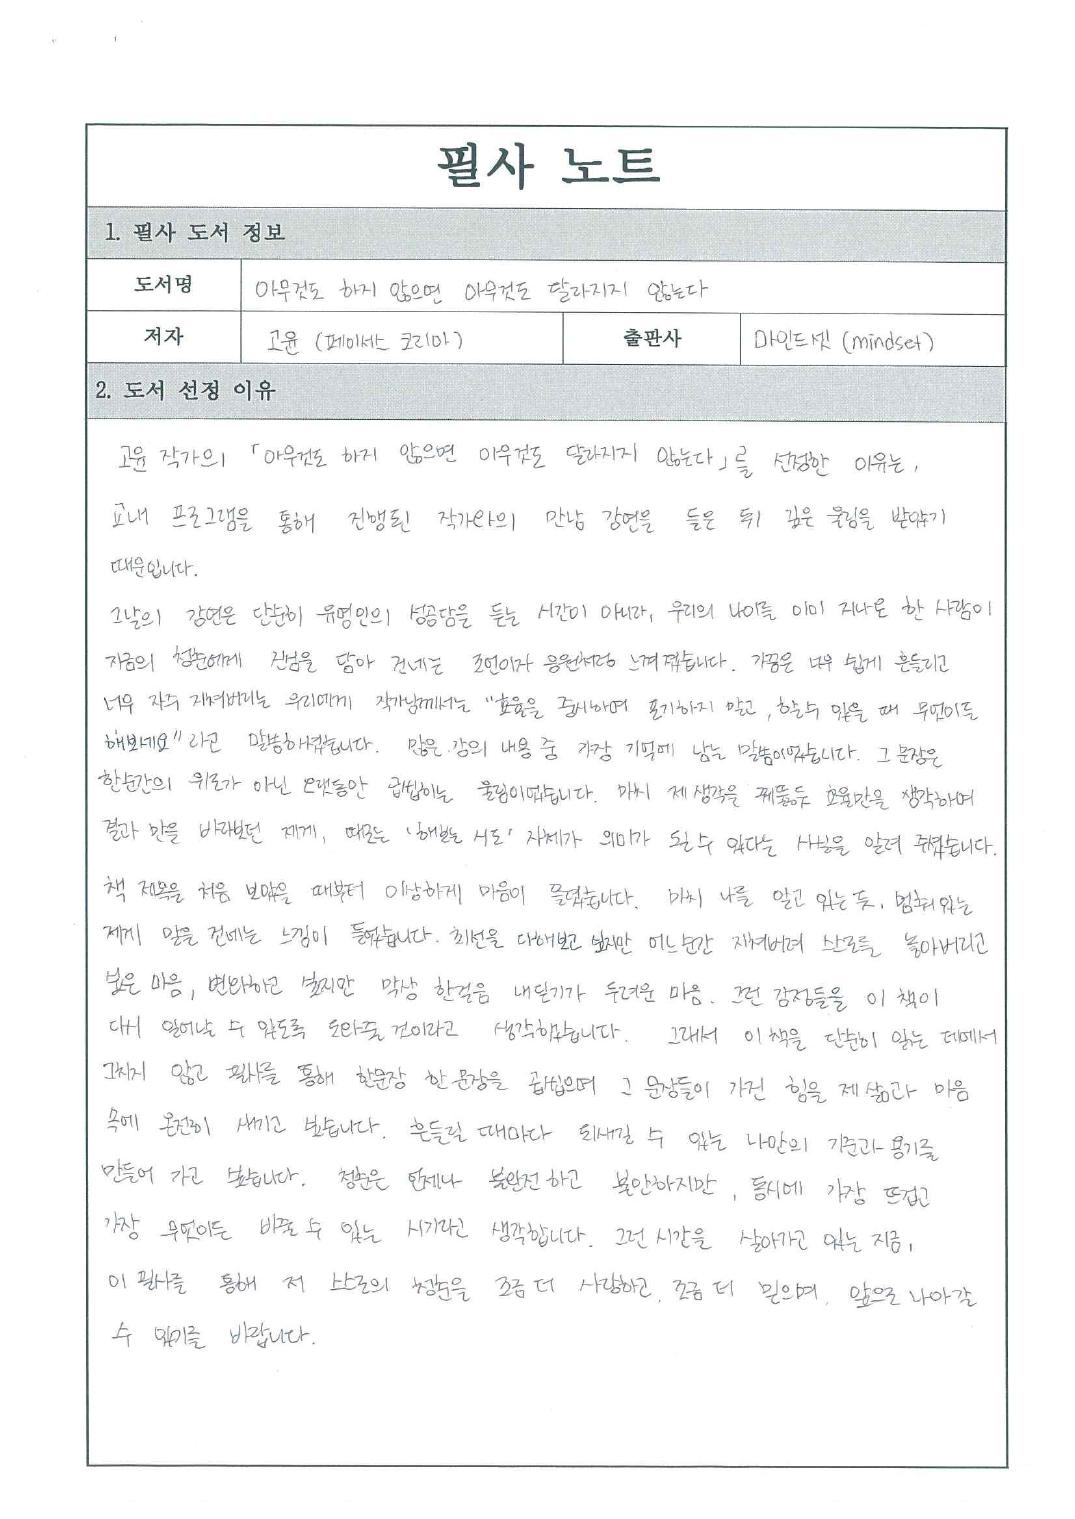 필사 노트
1. 필사 도서 정보
도서명 아무것도 하지 않으면 아무것도 달라지지 않는다
저자 고윤 (페이서스 코리아) 출판사 마인드셋 (mindset)
2. 도서 선정 이유
고윤 작가의 「아무것도 하지 않으면 아무것도 달라지지 않는다」를 선정한 이유는,
교내 프로그램을 통해 진행된 작가와의 만남 강연을 들은 뒤 깊은 울림을 받았기
때문입니다.
그날의 강연은 단순히 유명인의 성공담을 듣는 시간이 아니라, 우리의 나이를 이미 지나온 한 사람이
지금의 청춘에게 진심을 담아 건네는 조언이자 응원처럼 느껴졌습니다. 가끔은 너무 쉽게 흔들리고
너무 자주 지쳐버리는 우리에게 작가님께서는 "효율을 중시하며 포기하지 말고, 할 수 있을 때 무엇이든
해보세요" 라고 말씀하셨습니다. 많은 강의 내용 중 가장 기억에 남는 말씀이었습니다. 그 문장은
한순간의 위로가 아닌 오랫동안 곱씹히는 울림이었습니다. 마치 제 생각을 꿰뚫듯 효율만을 생각하며
결과 만을 바라보던 제게, 때로는 '해보는 시도' 자체가 의미가 될 수 있다는 사실을 알려 주셨습니다.
책 제목을 처음 보았을 때부터 이상하게 마음이 끌렸습니다. 마치 나를 알고 있는 듯, 멈춰 있는
제게 말을 건네는 느낌이 들었습니다. 최선을 다해보고 싶지만 어느순간 지쳐버려 스스로를 놓아버리고
싶은 마음, 변화하고 싶지만 막상 한걸음 내딛기가 두려운 마음. 그런 감정들을 이 책이
다시 일어날 수 있도록 도와줄 것이라고 생각하였습니다. 그래서 이 책을 단순히 읽는 데에서
그치지 않고 필사를 통해 한문장 한 문장을 곱씹으며 그 문장들이 가진 힘을 제 삶과 마음
속에 온전히 새기고 싶습니다. 흔들릴 때마다 되새길 수 있는 나만의 기준과 용기를
만들어 가고 싶습니다. 청춘은 언제나 불완전 하고 불안하지만, 동시에 가장 뜨겁고
가장 무엇이든 바꿀 수 있는 시기라고 생각합니다. 그런 시간을 살아가고 있는 지금,
이 필사를 통해 저 스스로의 청춘을 조금 더 사랑하고, 조금 더 믿으며, 앞으로 나아갈
수 있기를 바랍니다.